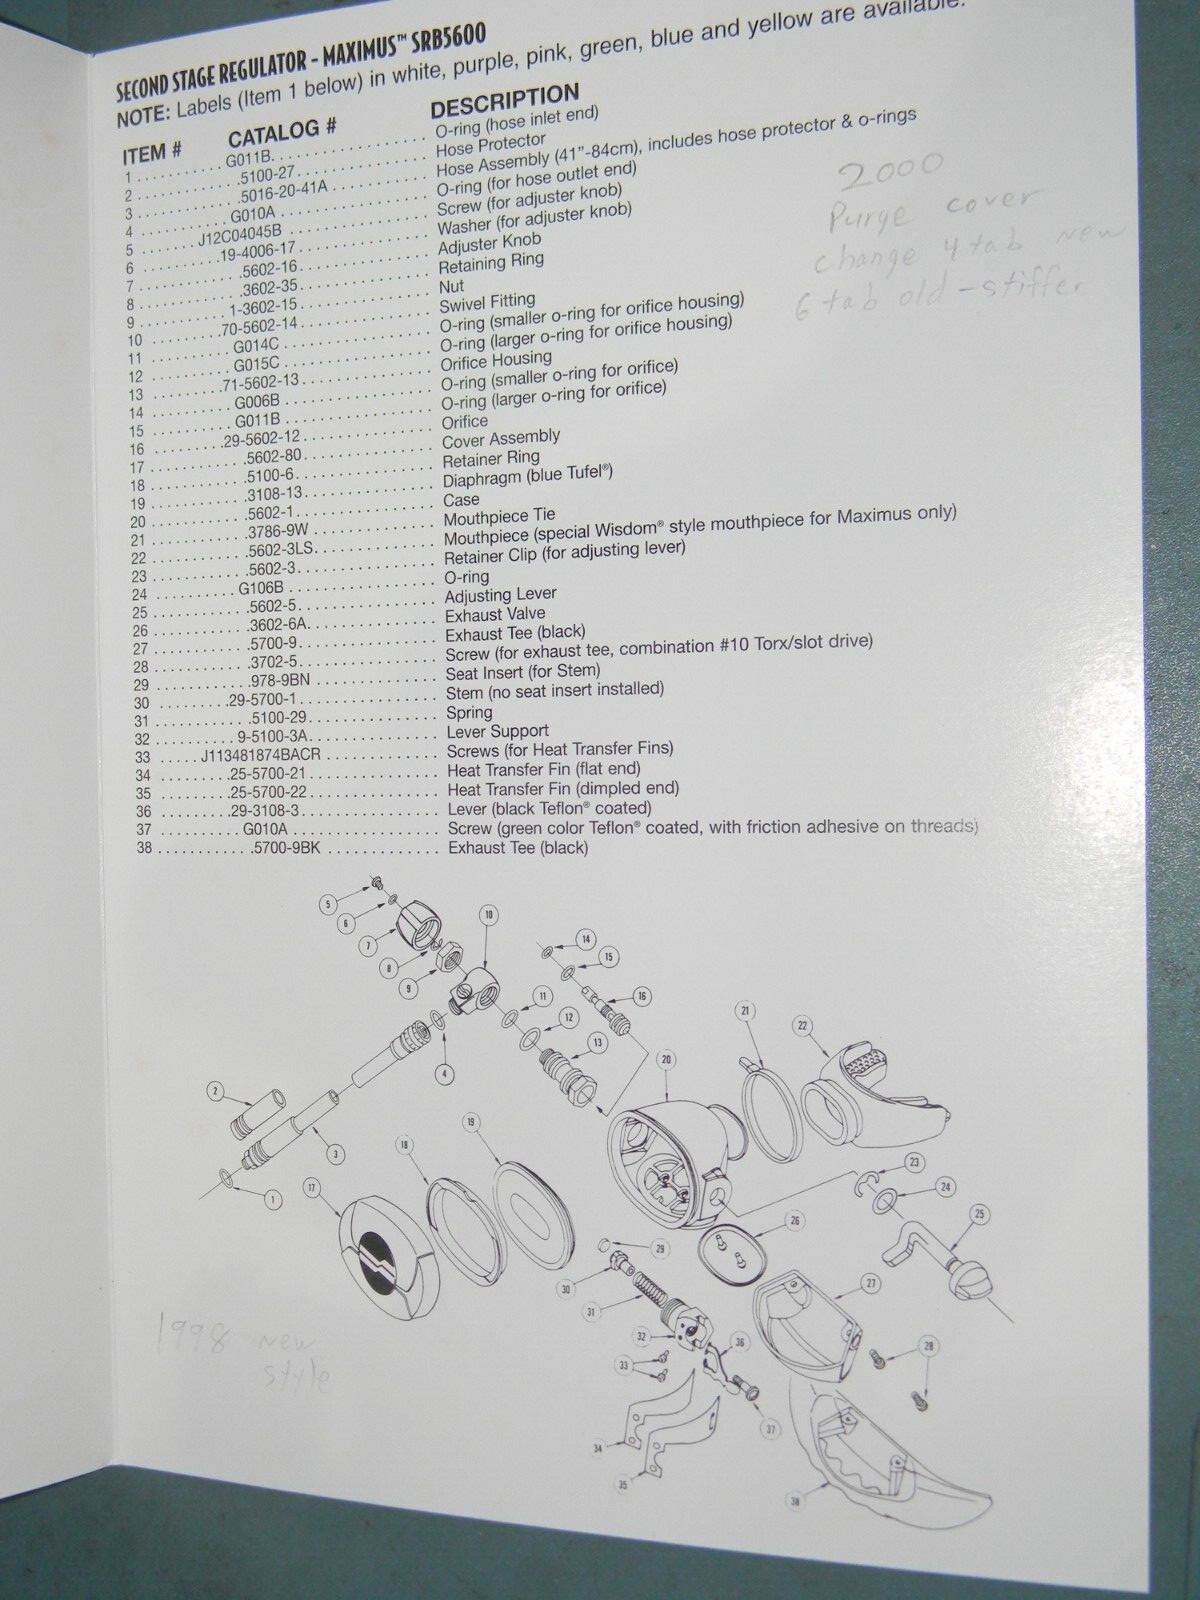 SECOND STAGE REGULATOR - MAXIMUS™ SRB5600
NOTE: Labels (Item 1 below) in white, purple, pink, green, blue and yellow are available.
ITEM # CATALOG # DESCRIPTION
1 . . . . . . . . . . G011B. . . . . . . . . . . . . . . . . O-ring (hose inlet end)
2 . . . . . . . . . . .5100-27. . . . . . . . . . . . . . . Hose Protector
3 . . . . . . . . . . .5016-20-41A . . . . . . . . . . . . Hose Assembly (41"-84cm), includes hose protector & o-rings
4 . . . . . . . . . . G010A . . . . . . . . . . . . . . . . O-ring (for hose outlet end)
5 . . . . . . .J12C04045B . . . . . . . . . . . . . . . Screw (for adjuster knob)
6 . . . . . . . . .19-4006-17. . . . . . . . . . . . . . . Washer (for adjuster knob)
7 . . . . . . . . . . .5602-16. . . . . . . . . . . . . . . Adjuster Knob
8 . . . . . . . . . . .3602-35. . . . . . . . . . . . . . . Retaining Ring
9 . . . . . . . . . . 1-3602-15. . . . . . . . . . . . . . . Nut
10 . . . . . . . . .70-5602-14. . . . . . . . . . . . . . . Swivel Fitting
11 . . . . . . . . . . G014C . . . . . . . . . . . . . . . . O-ring (smaller o-ring for orifice housing)
12 . . . . . . . . . . G015C . . . . . . . . . . . . . . . . O-ring (larger o-ring for orifice housing)
13 . . . . . . . . .71-5602-13. . . . . . . . . . . . . . . Orifice Housing
14 . . . . . . . . . . G006B . . . . . . . . . . . . . . . . O-ring (smaller o-ring for orifice)
15 . . . . . . . . . . G011B . . . . . . . . . . . . . . . . O-ring (larger o-ring for orifice)
16 . . . . . . . . .29-5602-12. . . . . . . . . . . . . . . Orifice
17 . . . . . . . . . . .5602-80. . . . . . . . . . . . . . . Cover Assembly
18 . . . . . . . . . . .5100-6. . . . . . . . . . . . . . . . Retainer Ring
19 . . . . . . . . . . .3108-13. . . . . . . . . . . . . . . Diaphragm (blue Tufel®)
20 . . . . . . . . . . .5602-1. . . . . . . . . . . . . . . . Case
21 . . . . . . . . . . .3786-9W . . . . . . . . . . . . . . Mouthpiece Tie
22 . . . . . . . . . . .5602-3LS. . . . . . . . . . . . . . Mouthpiece (special Wisdom® style mouthpiece for Maximus only)
23 . . . . . . . . . . .5602-3. . . . . . . . . . . . . . . . Retainer Clip (for adjusting lever)
24 . . . . . . . . . . G106B . . . . . . . . . . . . . . . . O-ring
25 . . . . . . . . . . .5602-5. . . . . . . . . . . . . . . . Adjusting Lever
26 . . . . . . . . . . .3602-6A. . . . . . . . . . . . . . . Exhaust Valve
27 . . . . . . . . . . .5700-9. . . . . . . . . . . . . . . . Exhaust Tee (black)
28 . . . . . . . . . . .3702-5. . . . . . . . . . . . . . . . Screw (for exhaust tee, combination #10 Torx/slot drive)
29 . . . . . . . . . . .978-9BN . . . . . . . . . . . . . . Seat Insert (for Stem)
30 . . . . . . . . .29-5700-1. . . . . . . . . . . . . . . . Stem (no seat insert installed)
31 . . . . . . . . . . .5100-29. . . . . . . . . . . . . . . Spring
32 . . . . . . . . . 9-5100-3A. . . . . . . . . . . . . . . Lever Support
33 . . . . . J113481874BACR . . . . . . . . . . . . . Screws (for Heat Transfer Fins)
34 . . . . . . . . .25-5700-21. . . . . . . . . . . . . . . Heat Transfer Fin (flat end)
35 . . . . . . . . .25-5700-22. . . . . . . . . . . . . . . Heat Transfer Fin (dimpled end)
36 . . . . . . . . .29-3108-3. . . . . . . . . . . . . . . . Lever (black Teflon® coated)
37 . . . . . . . . . . G010A . . . . . . . . . . . . . . . . Screw (green color Teflon® coated, with friction adhesive on threads)
38 . . . . . . . . . . . .5700-9BK . . . . . . . . . . . . . Exhaust Tee (black)
2000
Purge cover
change 4 tab new
6 tab old - stiffer
5
6
7
8
9
10
14
15
16
11
12
13
4
2
3
1
20
21
22
19
18
17
23
24
25
26
29
30
31
32
33
36
27
28
37
34
35
38
1998 new
style